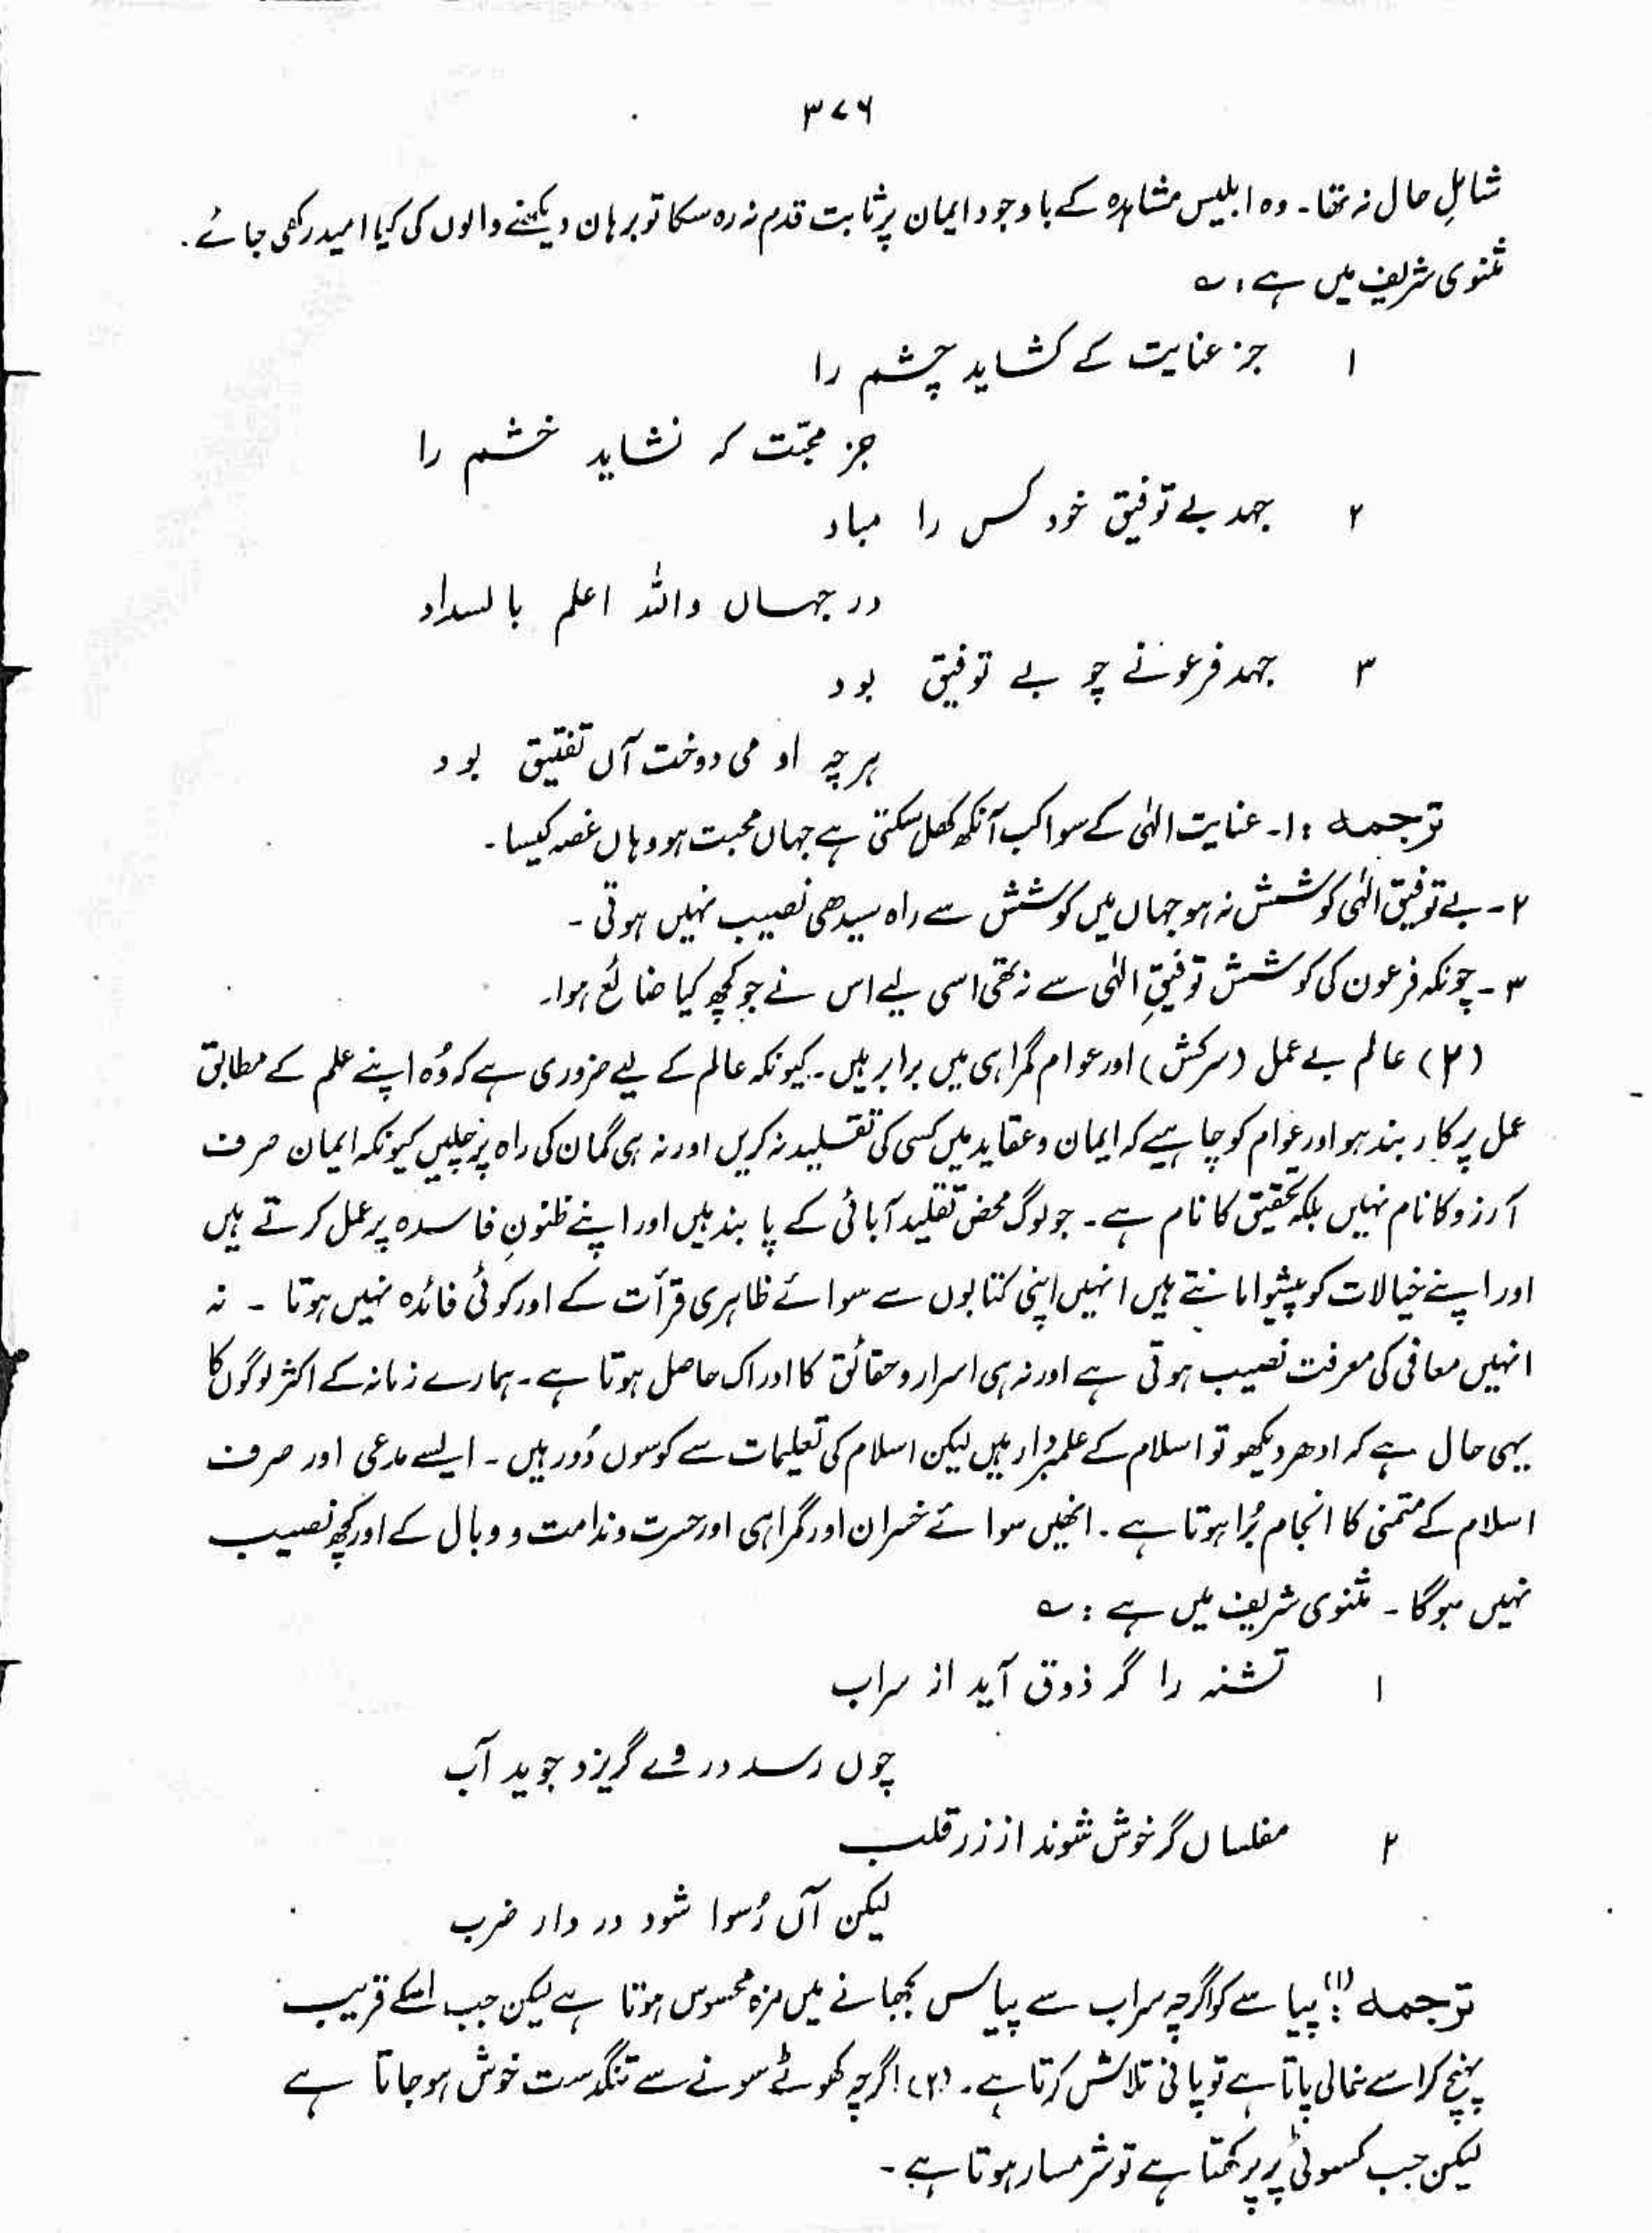 ۳۷۶
شاملِ حال نہ تھا۔ وہ ابلیس مشاہدہ کے باوجود ایمان پر ثابت قدم نہ رہ سکا تو برہان دیکھنے والوں کی کیا امید رکھی جائے۔
مثنوی شریف میں ہے : ؎
۱ جز عنایت کے کشاید چشم را
جز محبّت کہ نشاید خشم را
۲ جہد بے توفیق خود کس را مباد
در جہاں واللہ اعلم بالسداد
۳ جہد فرعونے چو بے توفیق بود
ہرچہ او می دوخت آں تفتیق بود
ترجمہ : ۱۔ عنایت الٰہی کے سوا کب آنکھ کھل سکتی ہے جہاں محبت ہو وہاں غصہ کیسا۔
۲۔ بے توفیق الٰہی کوشش نہ ہو جہاں میں کوشش سے راہ سیدھی نصیب نہیں ہوتی۔
۳۔ چونکہ فرعون کی کوشش توفیقِ الٰہی سے نہ تھی اسی لیے اس نے جو کچھ کیا ضائع ہوا۔
(۲) عالم بے عمل (سرکش) اور عوام گمراہی میں برابر ہیں۔ کیونکہ عالم کے لیے ضروری ہے کہ وُہ اپنے علم کے مطابق
عمل پر کاربند ہو اور عوام کو چاہیے کہ ایمان و عقاید میں کسی کی تقلید نہ کریں اور نہ ہی گمان کی راہ پر چلیں کیونکہ ایمان صرف
آرزو کا نام نہیں بلکہ تحقیق کا نام ہے۔ جو لوگ محض تقلید آبائی کے پابند ہیں اور اپنے ظنونِ فاسدہ پر عمل کرتے ہیں
اور اپنے خیالات کو پیشوا مانتے ہیں انہیں اپنی کتابوں سے سوائے ظاہری قرأت کے اور کوئی فائدہ نہیں ہوتا ۔ نہ
انہیں معافی کی معرفت نصیب ہوتی ہے اور نہ ہی اسرار و حقائق کا ادراک حاصل ہوتا ہے۔ ہمارے زمانہ کے اکثر لوگوں کا
یہی حال ہے کہ ادھر دیکھو تو اسلام کے علمبردار ہیں لیکن اسلام کی تعلیمات سے کوسوں دُور ہیں۔ ایسے مدعی اور صرف
اسلام کے متمنی کا انجام بُرا ہوتا ہے۔ انھیں سوائے خسران اور گمراہی اور حسرت و ندامت و وبال کے اور کچھ نصیب
نہیں ہوگا۔ مثنوی شریف میں ہے : ؎
۱ تشنہ را گر ذوق آید از سراب
چوں رسد در وے گریزد جوید آب
۲ مفلساں گر خوش شوند از زر قلب
لیکن آں رُسوا شود در دار ضرب
ترجمہ : (۱) پیاسے کو اگرچہ سراب سے پیاس بجھانے میں مزہ محسوس ہوتا ہے لیکن جب اسکے قریب
پہنچ کر اسے خالی پاتا ہے تو پانی تلاش کرتا ہے۔ (۲) اگرچہ کھوٹے سونے سے تنگدست خوش ہوجاتا ہے
لیکن جب کسوٹی پر پرکھتا ہے تو شرمسار ہوتا ہے۔